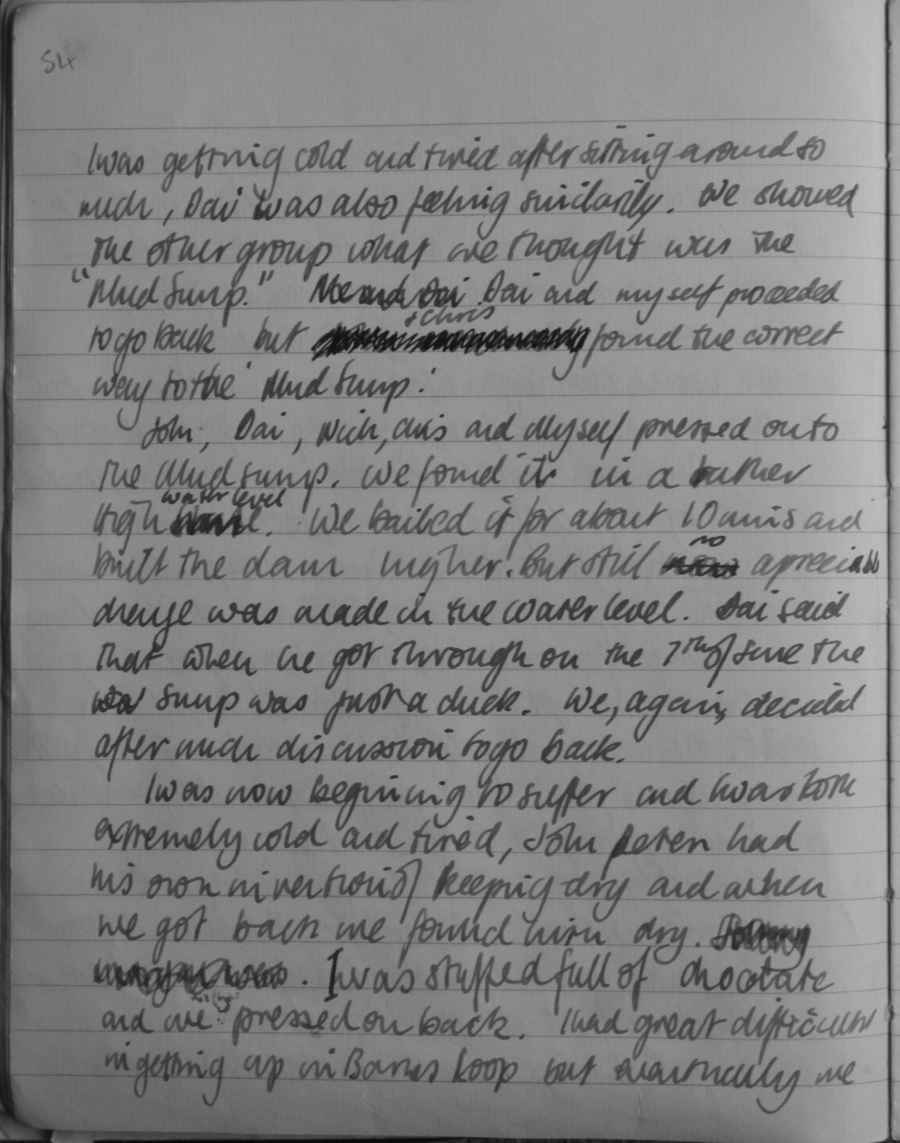 54
I was getting cold and tired after sitting around so
much, Dai was also feeling similarily. We showed
the other group what we thought was the
"Mud Sump." Me and Dai Dai and myself proceeded
to go back but + chris found the correct
way to the 'Mud Sump'.
John, Dai, Nick, chris and Myself pressed on to
the Mud sump. We found it in a rather
high water level. We bailed it for about 10 mins and
built the dam higher. But still no
change was made in the water level. Dai said
that when he got through on the 7th of June the
sump was just a duck. We, again, decided
after much discussion to go back.
I was now beginning to suffer and I was both
extremely cold and tired, John had
his own invention of keeping dry and when
we got back we found him dry.
I was stuffed full of chocolate
and we pressed on back. I had great difficulty
in getting up in Loop but eventually we